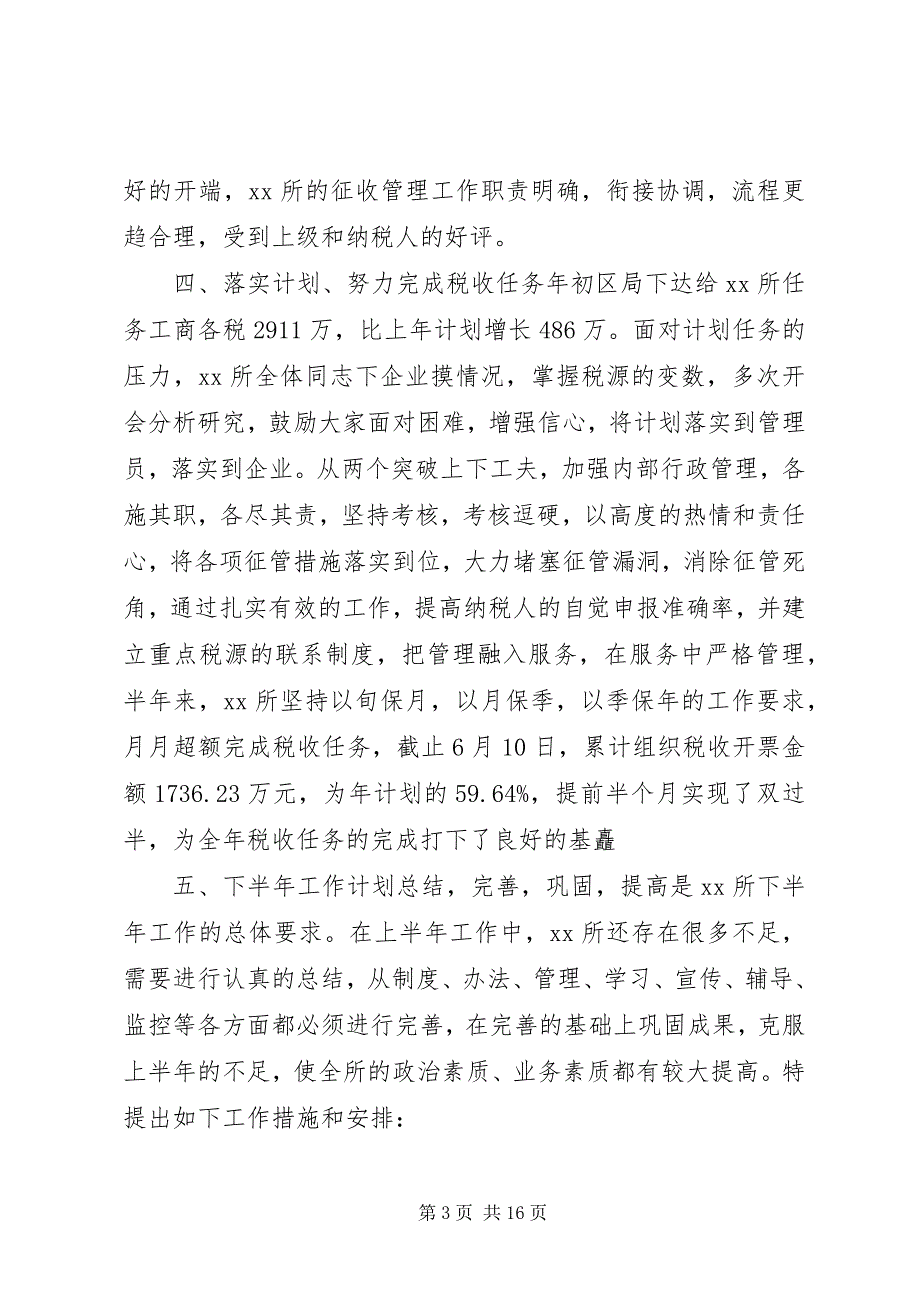 好的开端，xx 所的征收管理工作职责明确，衔接协调，流程更
趋合理，受到上级和纳税人的好评。
四、落实计划、努力完成税收任务年初区局下达给 xx 所任
务工商各税 2911 万，比上年计划增长 486 万。面对计划任务的
压力，xx 所全体同志下企业摸情况，掌握税源的变数，多次开
会分析研究，鼓励大家面对困难，增强信心，将计划落实到管理
员，落实到企业。从两个突破上下工夫，加强内部行政管理，各
施其职，各尽其责，坚持考核，考核逗硬，以高度的热情和责任
心，将各项征管措施落实到位，大力堵塞征管漏洞，消除征管死
角，通过扎实有效的工作，提高纳税人的自觉申报准确率，并建
立重点税源的联系制度，把管理融入服务，在服务中严格管理，
半年来，xx 所坚持以旬保月，以月保季，以季保年的工作要求，
月月超额完成税收任务，截止 6 月 10 日，累计组织税收开票金
额 1736.23 万元，为年计划的 59.64%，提前半个月实现了双过
半，为全年税收任务的完成打下了良好的基矗
五、下半年工作计划总结，完善，巩固，提高是 xx 所下半
年工作的总体要求。在上半年工作中，xx 所还存在很多不足，
需要进行认真的总结，从制度、办法、管理、学习、宣传、辅导、
监控等各方面都必须进行完善，在完善的基础上巩固成果，克服
上半年的不足，使全所的政治素质、业务素质都有较大提高。特
提出如下工作措施和安排：
第 3 页 共 16 页